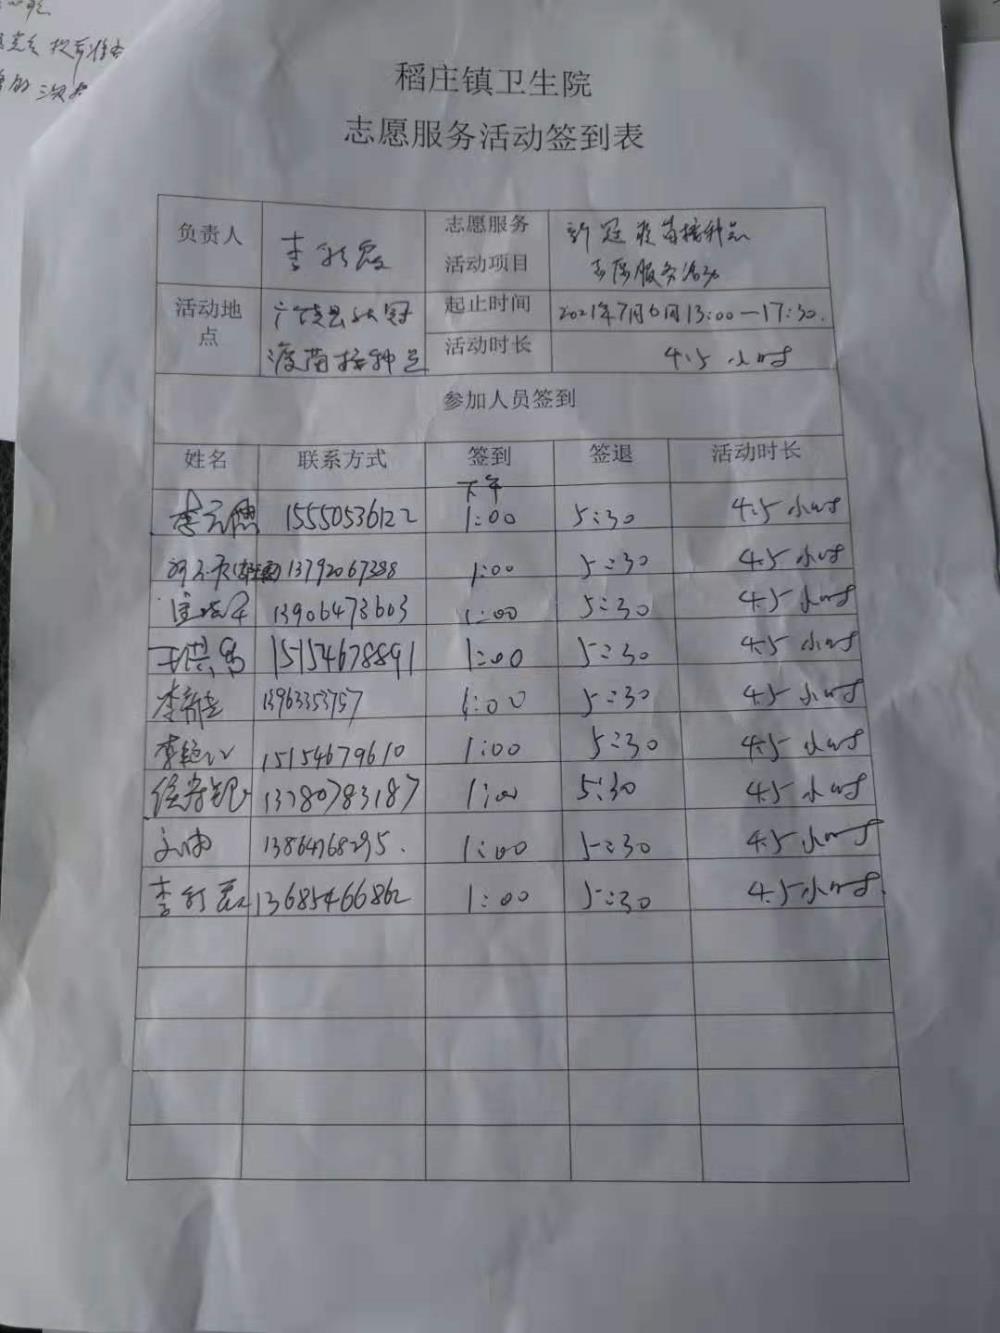 稻庄镇卫生院
志愿服务活动签到表
负责人
志愿服务
活动项目
新冠疫苗接种点
志愿服务活动
活动地
点
广饶县新冠
疫苗接种点
起止时间
2021年7月6日13:00—17:30.
活动时长
4.5 小时
参加人员签到
姓名 联系方式 签到 签退 活动时长
下午
15550536122 1:00 5:30 4.5 小时
13792067388 1:00 5:30 4.5 小时
13906473603 1:00 5:30 4.5 小时
15154678891 1:00 5:30 4.5 小时
13963353757 1:00 5:30 4.5 小时
李艳 15154679610 1:00 5:30 4.5 小时
13780783187 1:00 5:30 4.5 小时
1:00 5:30 4.5 小时
李 13685466862 1:00 5:30 4.5 小时